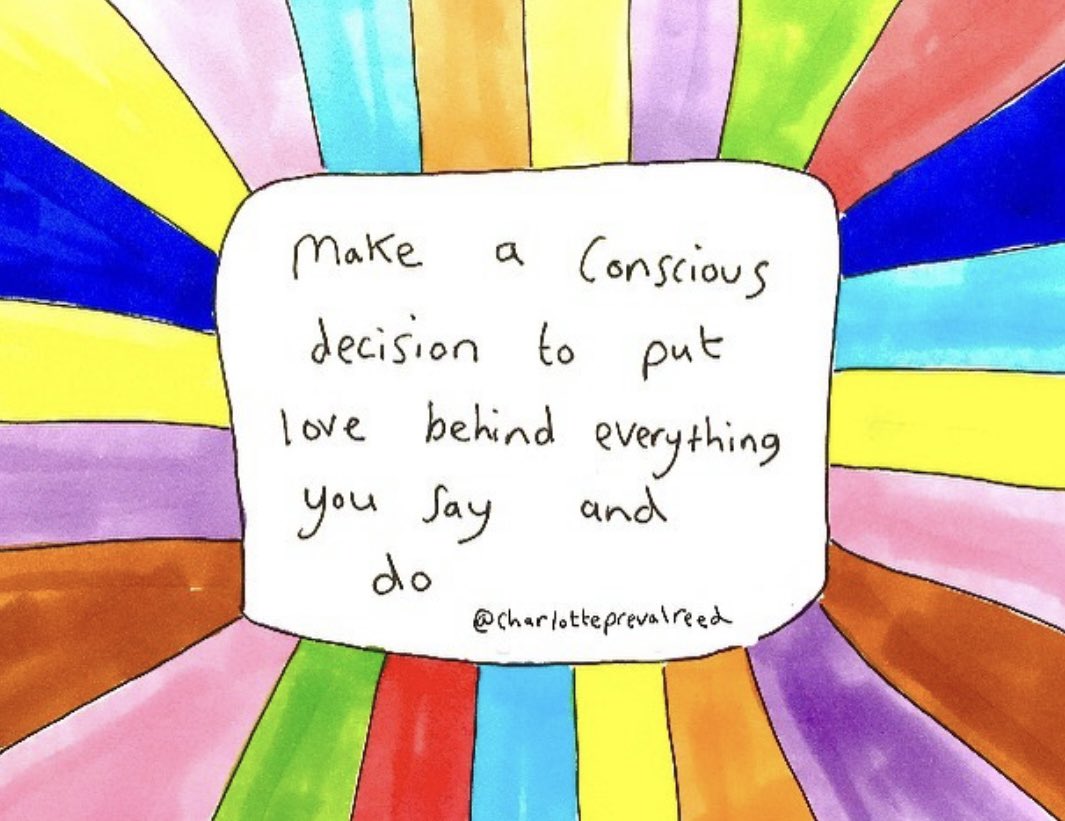 Make a Conscious
decision to put
love behind everything
you say and
do
@charlotteprevalreed